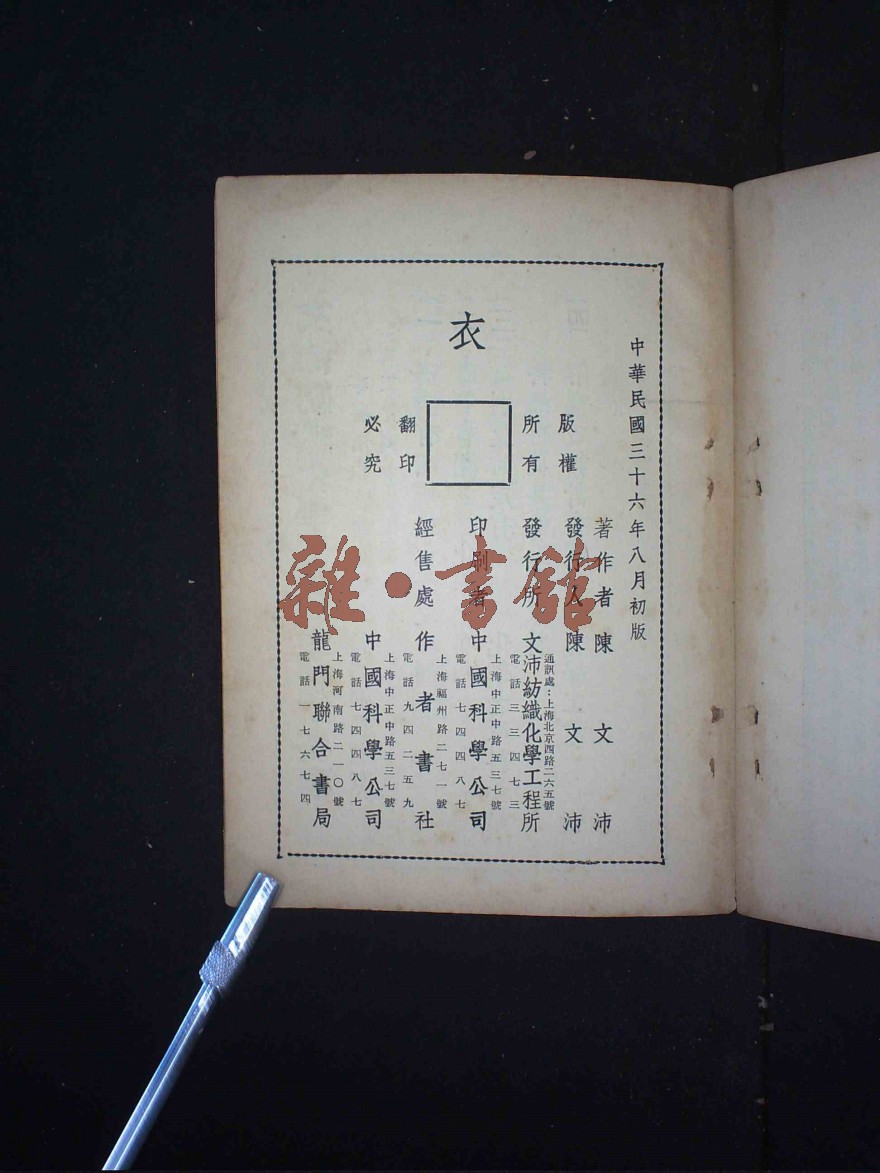 中華民國三十六年八月初版
衣
版權所有
翻印必究
著作者 陳文沛
發行人 陳文沛
通訊處：上海北京西路二六五號
發行所 文沛紡織化學工程所
電話三三四七三
上海中正中路五三七號
印刷者 中國科學公司
電話七四四八七
上海福州路二七一號
經售處 作者書社
電話九四二五九
上海中正中路五三七號
中國科學公司
電話七四四八七
上海河南路二一〇號
龍門聯合書局
電話一七六七四
雜·書館